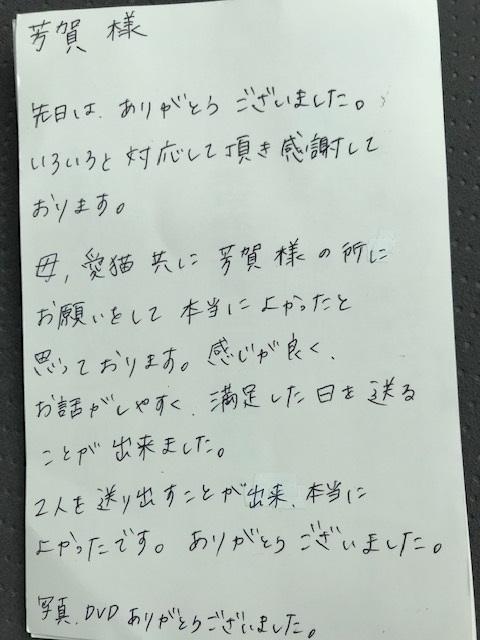 芳賀 様
先日は、ありがとう ございました。
いろいろと 対応して 頂き 感謝して
おります。
母, 愛猫 共に 芳賀 様 の 所に
お願いをして 本当に よかったと
思っております。感じが 良く、
お話がしやすく、満足した 日を 送る
ことが 出来ました。
2人を 送り出すことが出来、本当に
よかったです。ありがとう ございました。
写真、DVD ありがとうございました。